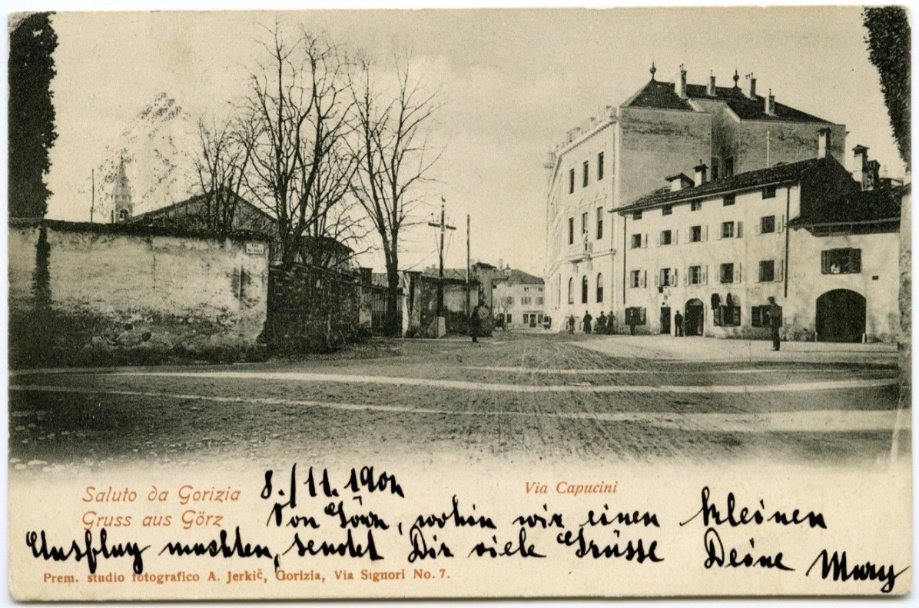 Saluto da Gorizia
Gruss aus Görz
Via Capucini
8./11. 190
Von Görz, wohin wir einen kleinen
Ausflug machten, sendet Dir viele Grüsse Deine Mary
Prem. studio fotografico A. Jerkič, Gorizia, Via Signori No. 7.